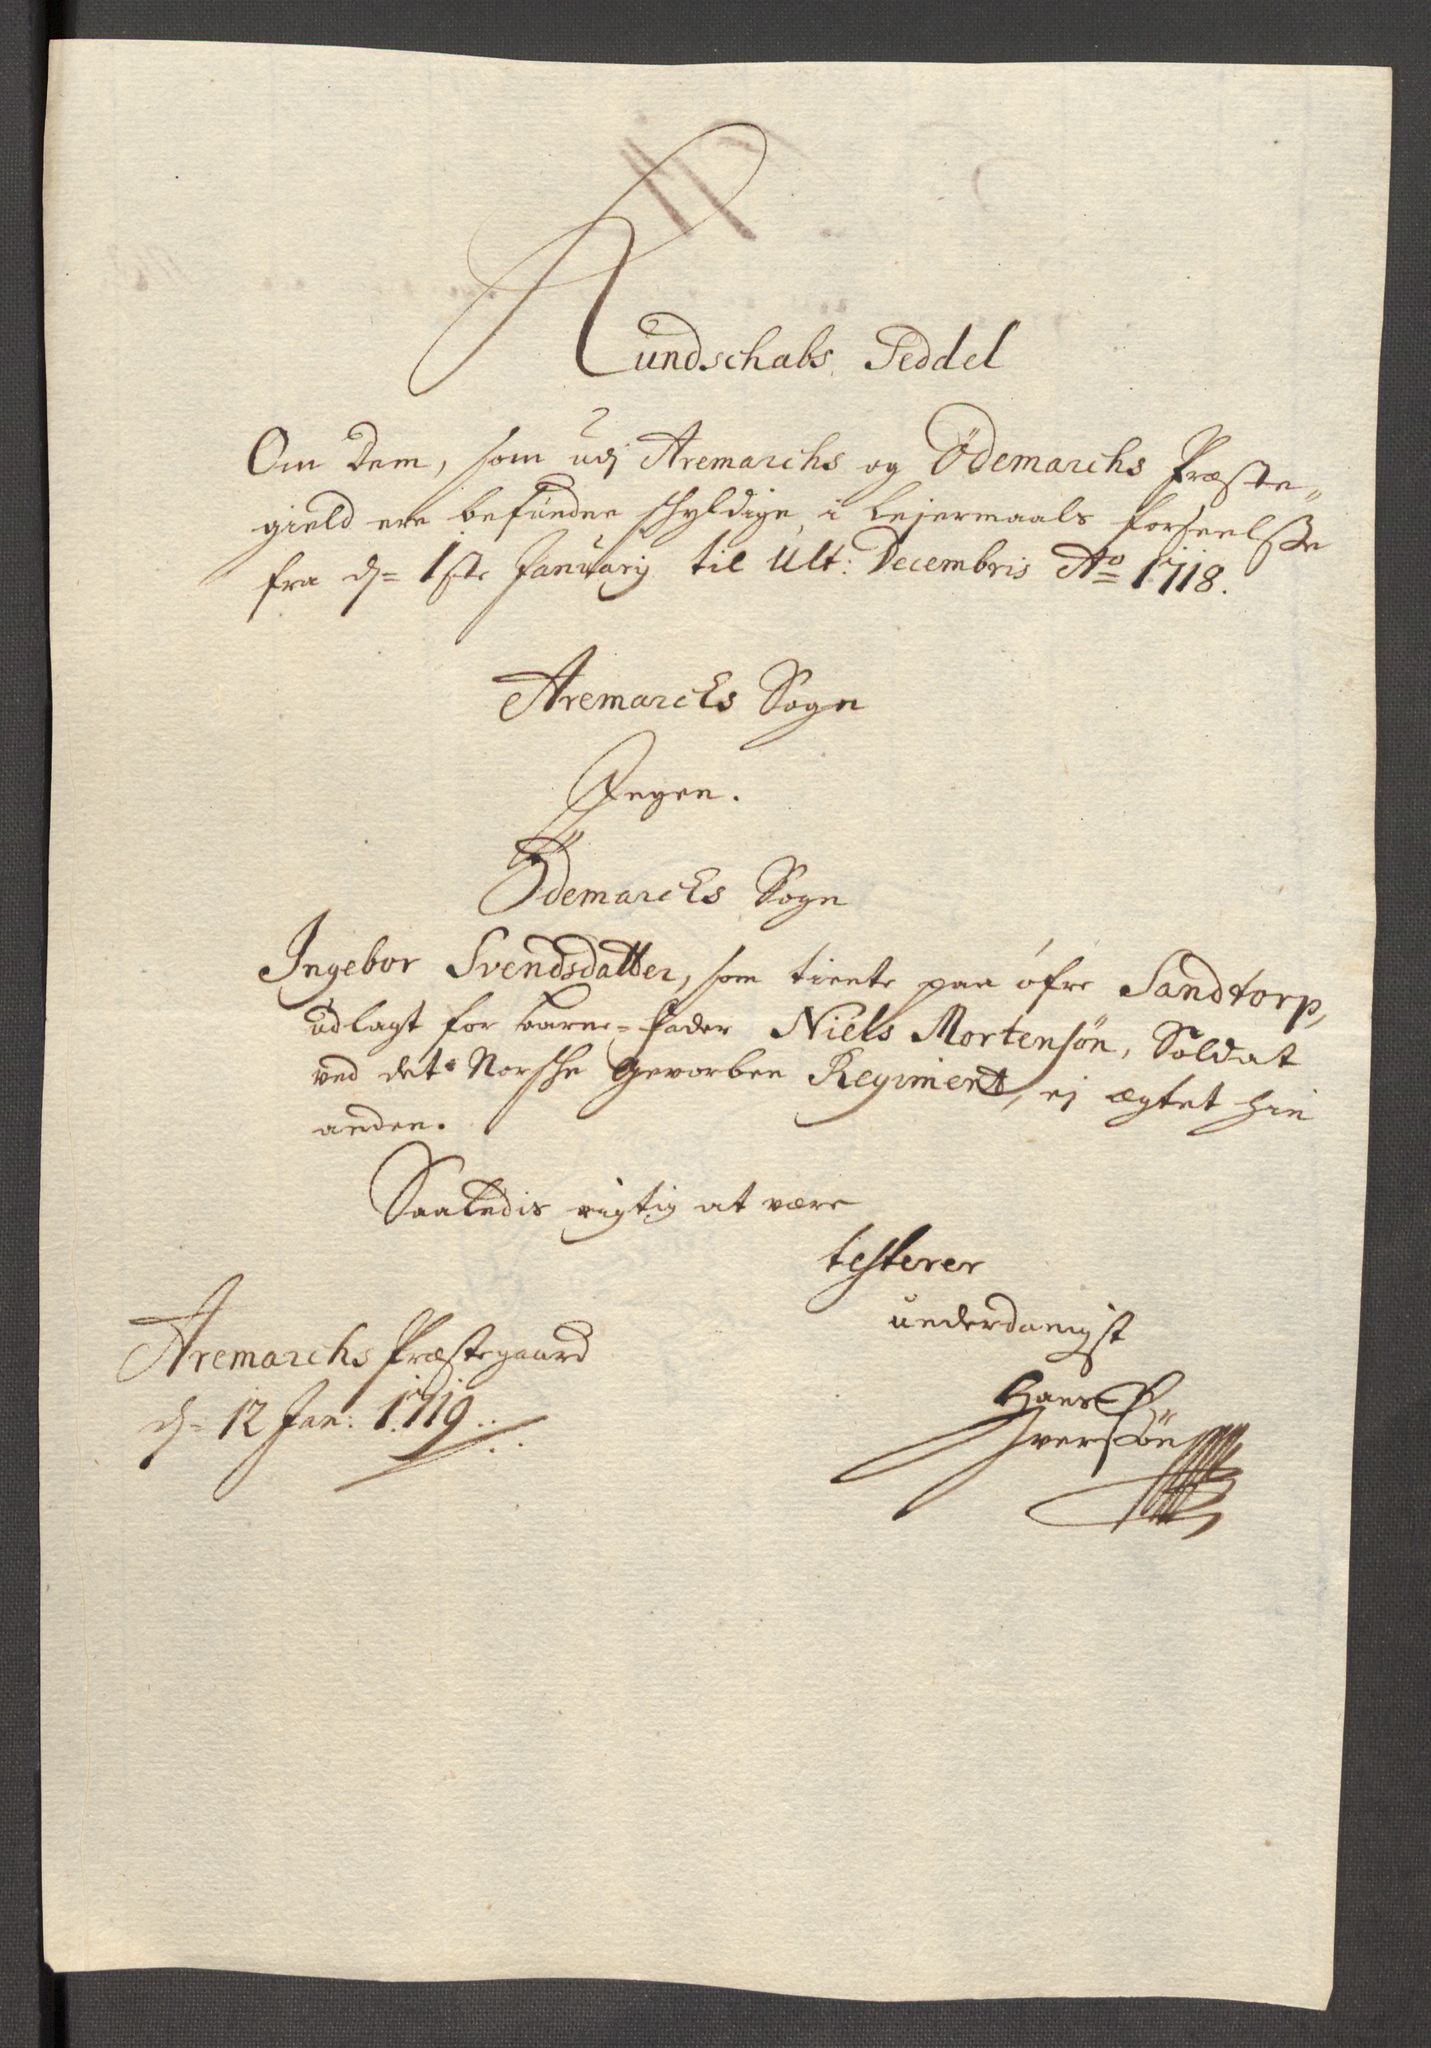 Kundschabs Seddel
Om dem, som udj Aremarchs og Ödemarchs Præste-
gield ere befundne schyldige i Leiermaals forseelsse
fra d= 1ste Januarij til Ult: Decembris Ao 1718.
Aremarchs Sogn
Ingen.
Ödemarchs Sogn
Ingebor Svendsdatter, som tiente paa öfre Sandtorp,
udlagt for barne=fader Niels Mortensön, Soldat
ved det Norsche Gevorben Regiment, ej ægtet hin
anden.
Saaledis rigtig at være
testerer
underdanigst
Aremarchs Præstegaard
d= 12 Jan: 1719.
Hans
Iversøn